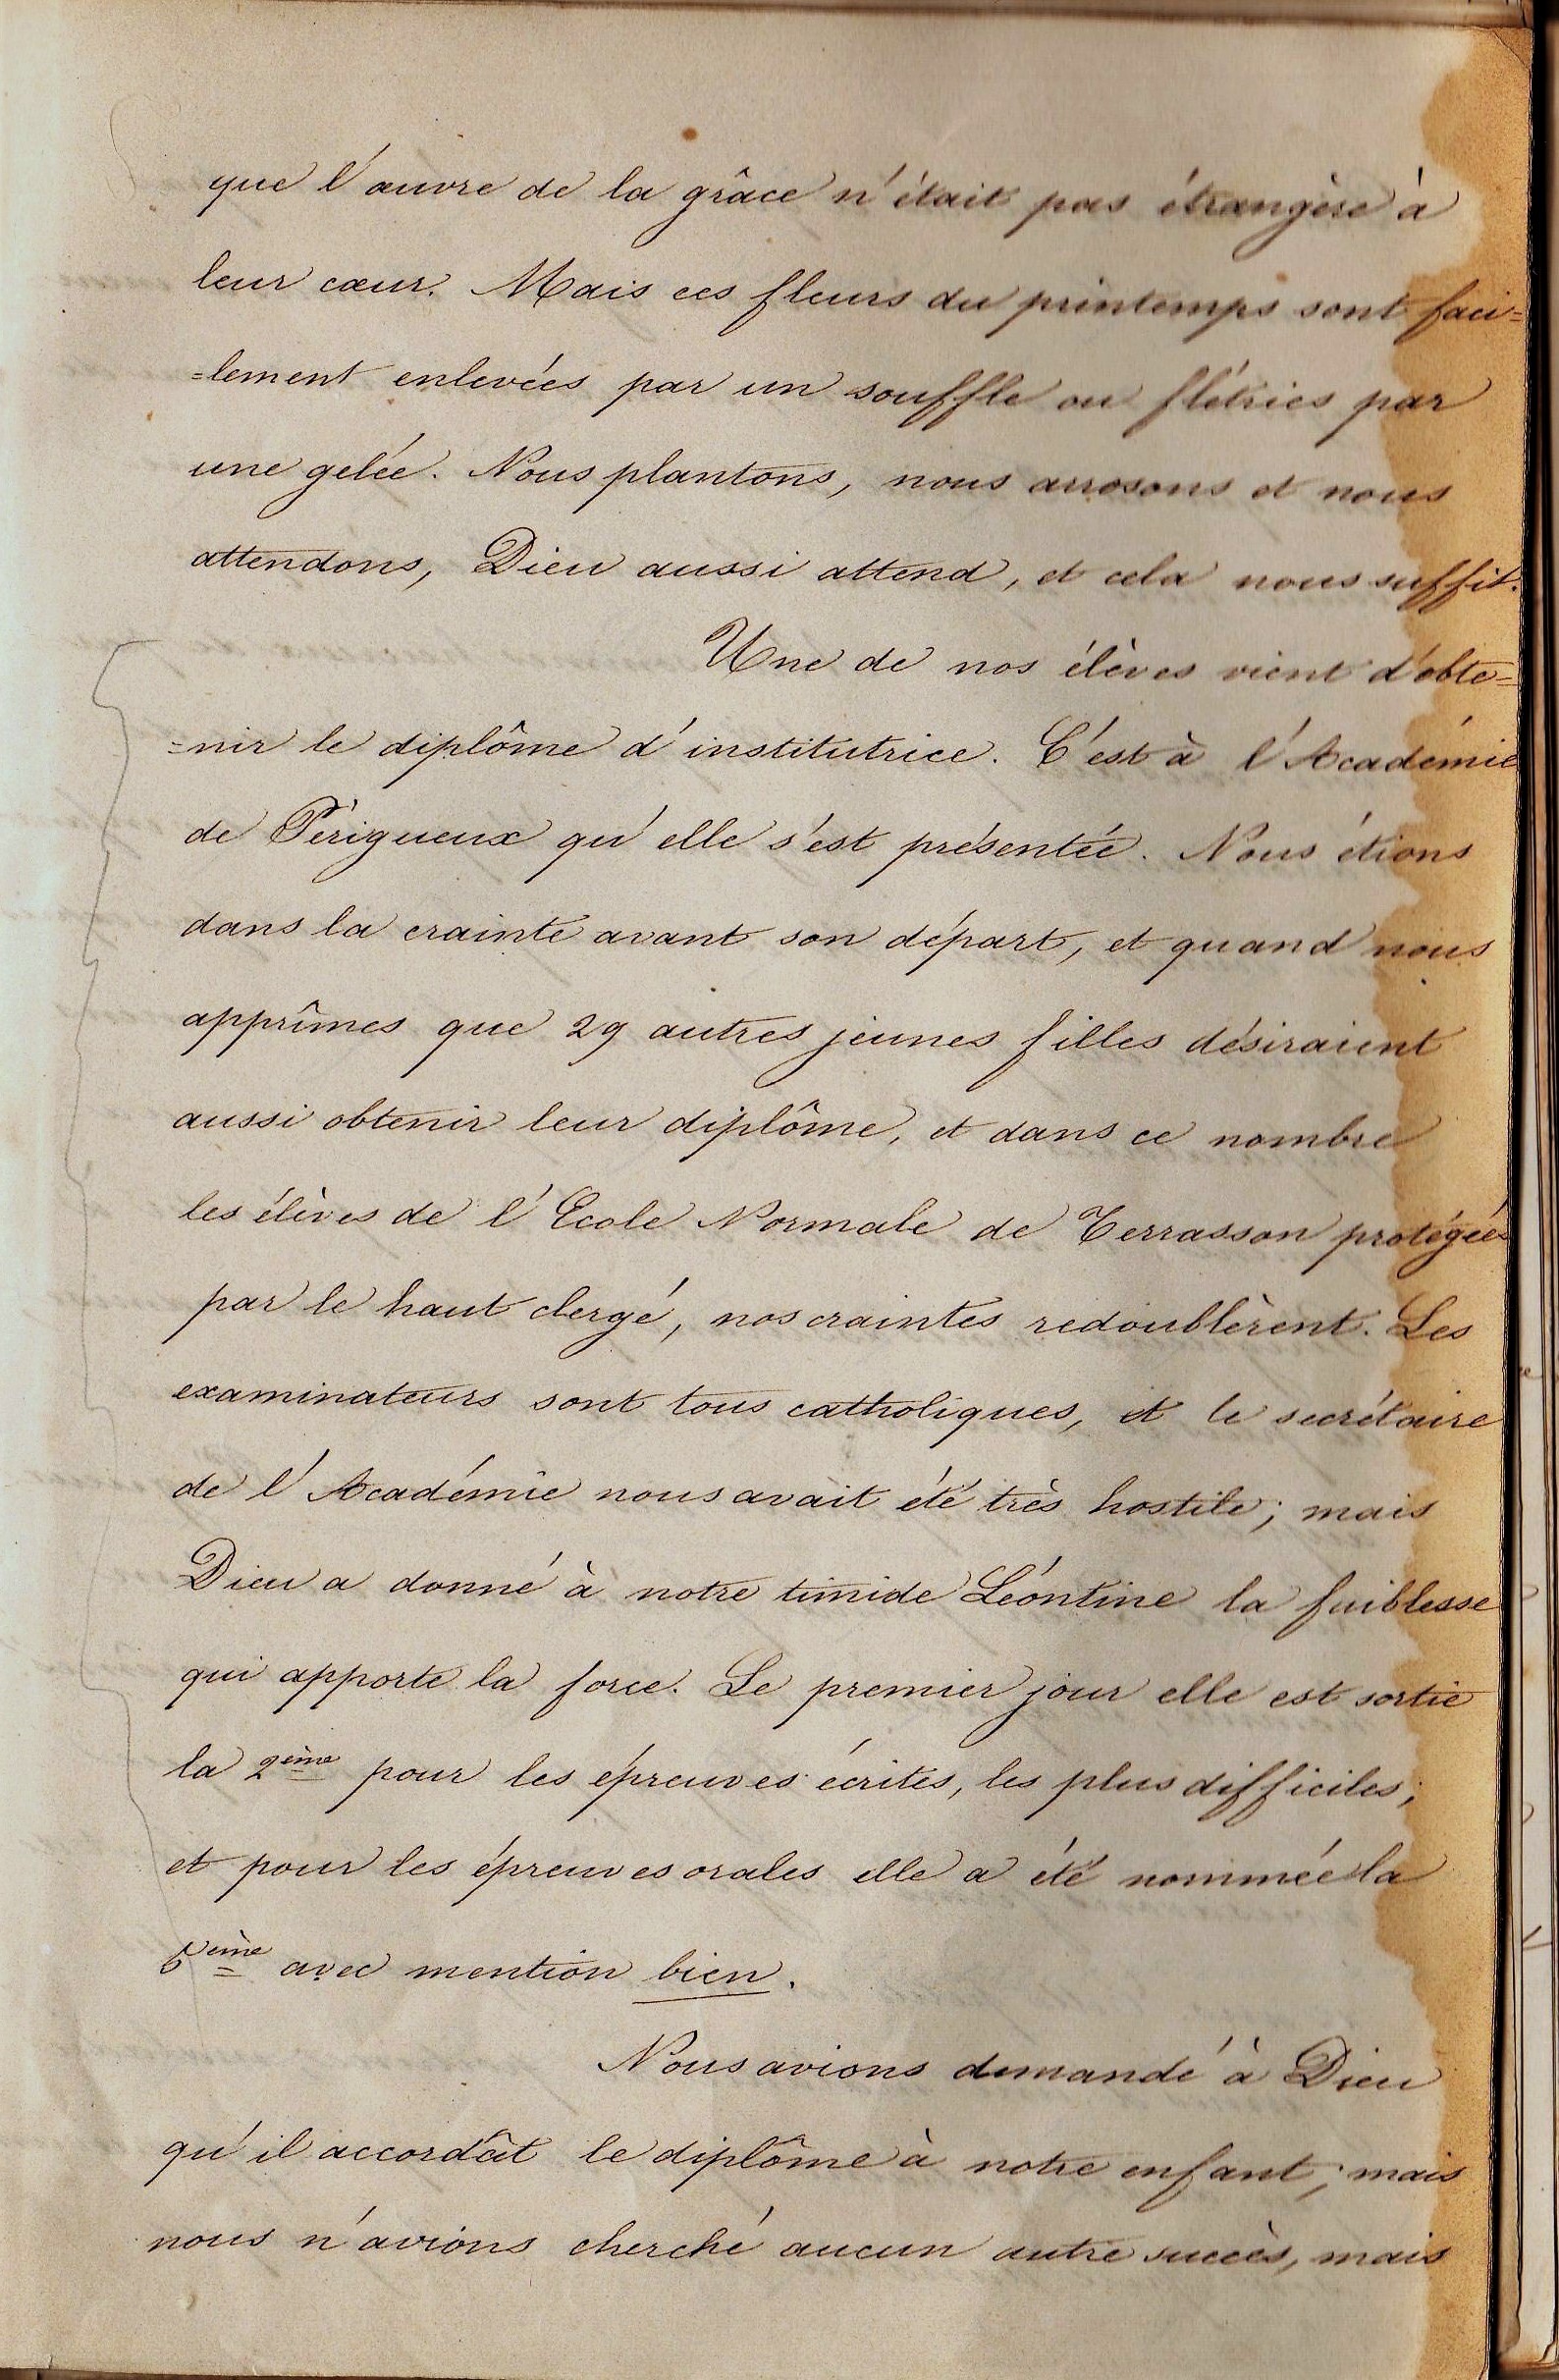 que l'œuvre de la grâce n'était pas étrangère à
leur cœur. Mais ces fleurs du printemps sont faci=
=lement enlevées par un souffle ou flétries par
une gelée. Nous plantons, nous arrosons et nous
attendons, Dieu aussi attend, et cela nous suffit.
Une de nos élèves vient d'obte=
=nir le diplôme d'institutrice. C'est à l'Académie
de Périgueux qu'elle s'est présentée. Nous étions
dans la crainte avant son départ, et quand nous
apprîmes que 29 autres jeunes filles désiraient
aussi obtenir leur diplôme, et dans ce nombre
les élèves de l'Ecole Normale de Terrasson protégées
par le haut clergé, nos craintes redoublèrent. Les
examinateurs sont tous catholiques, et le secrétaire
de l'Académie nous avait été très hostile; mais
Dieu a donné à notre timide Léontine la faiblesse
qui apporte la force. Le premier jour elle est sortie
la 2ème pour les épreuves écrites, les plus difficiles;
et pour les épreuves orales elle a été nommée la
6ème avec mention bien.
Nous avions demandé à Dieu
qu'il accordât le diplôme à notre enfant; mais
nous n'avions cherché aucun autre succès, mais